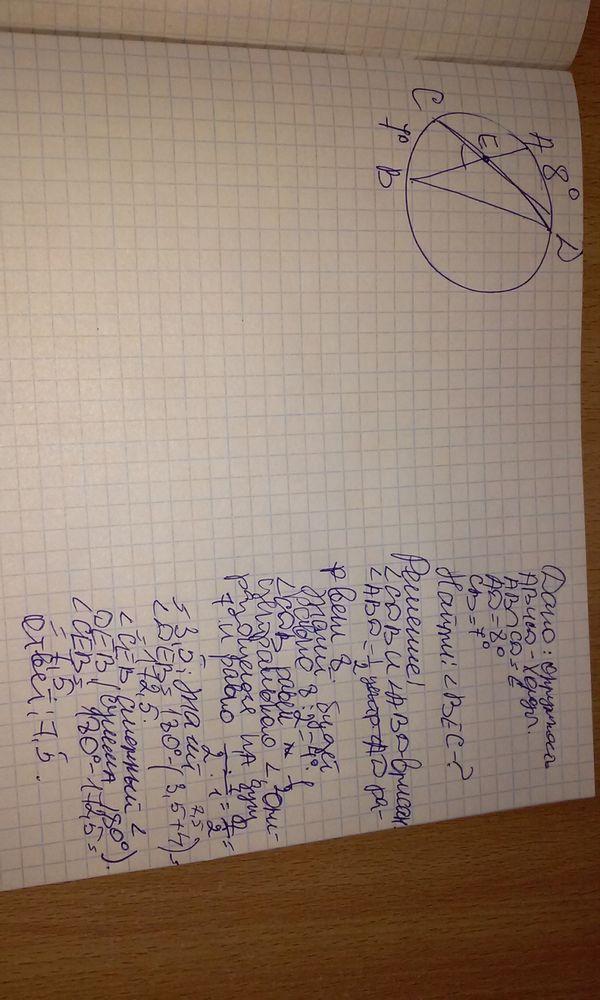 C
A
8°
D
E
7°
B
Дано: окружность
АВ и СD - хорды.
АВ ∩ CD = E
AD = 8°
CB = 7°
Найти: ∠BEC - ?
Решение:
∠CDB и ∠ABD вписан.
∠ABD = 1/2 дуги AD ра-
вен 8
будет
8/2 = 4°.
∠CDB равен
центрального ∠ опи-
рающегося на дугу
7 и равно 7/2
= 3,5; Значит
∠DEB = 180° - (3,5+4) =
7,5
= 172,5.
∠CEB смежный ∠
DEB, (сумма 180°)
∠CEB = 180° - 172,5 =
= 7,5
Ответ: 7,5.